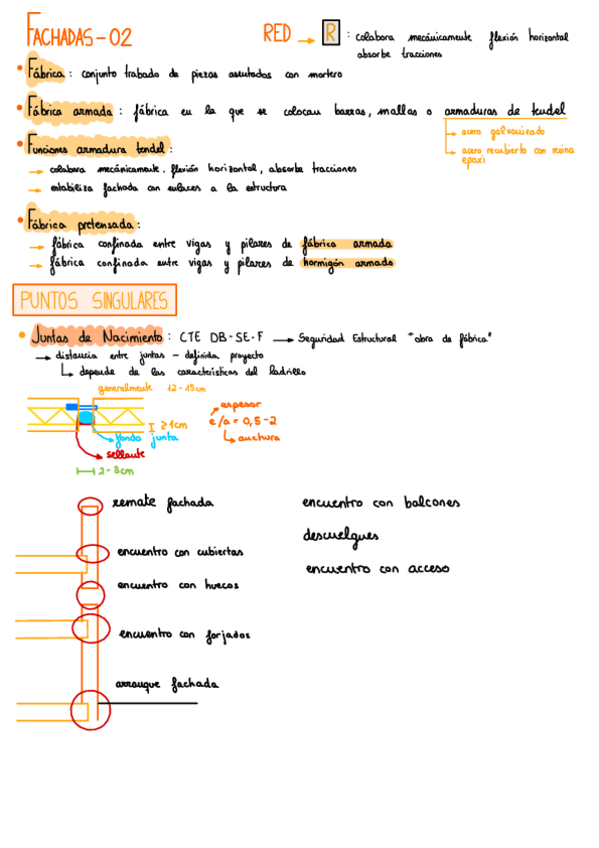 FACHADAS - 02
RED → R : colabora mecánicamente flexión horizontal
absorbe tracciones
• Fábrica : conjunto trabado de piezas asentadas con mortero
• Fábrica armada : fábrica en la que se colocan barras, mallas o armaduras de tendel
→ acero galvanizado
→ acero recubierto con resina
epoxi
• Funciones armadura tendel :
→ colabora mecánicamente. flexión horizontal, absorbe tracciones
→ estabiliza fachada con enlaces a la estructura
• Fábrica pretensada :
→ fábrica confinada entre vigas y pilares de fábrica armada
→ fábrica confinada entre vigas y pilares de hormigón armado
PUNTOS SINGULARES
• Juntas de Nacimiento : CTE DB-SE-F → Seguridad Estructural "obra de fábrica"
→ distancia entre juntas - definida proyecto
↳ depende de las características del ladrillo
generalmente 12-15cm
≥1cm
fondo junta
sellante
2-3cm
espesor
e/a = 0,5-2
↳ anchura
remate fachada
encuentro con cubiertas
encuentro con huecos
encuentro con forjados
arranque fachada
encuentro con balcones
descuelgues
encuentro con acceso